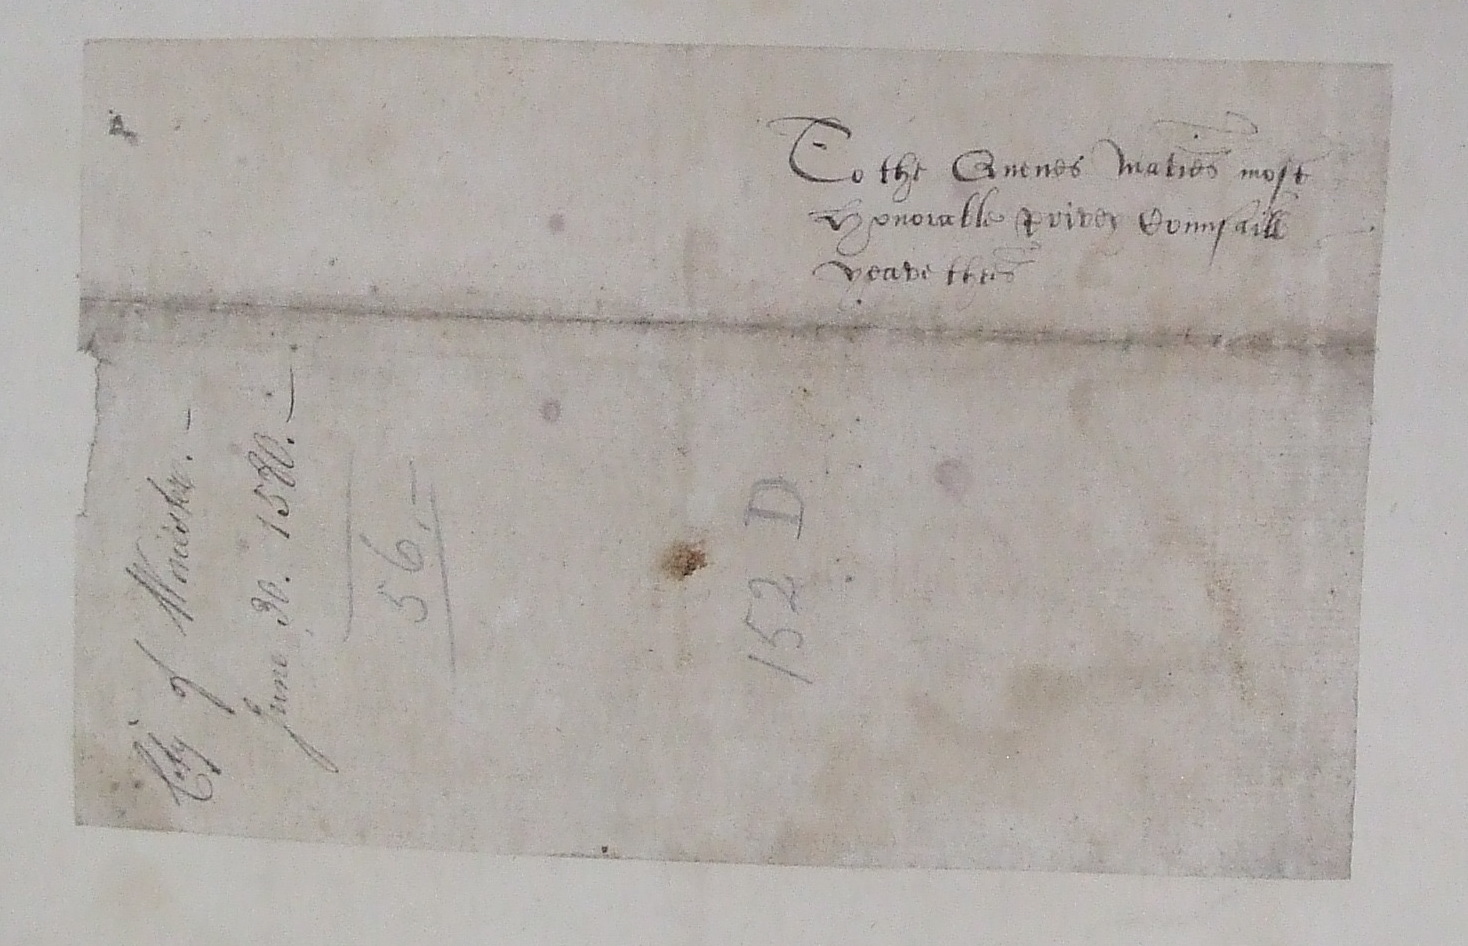 To the Quenes Maties most
Honorable privey Counsaill
yeave thes
City of Worcister. —
June. 30. 1580. —
56. —
152 D